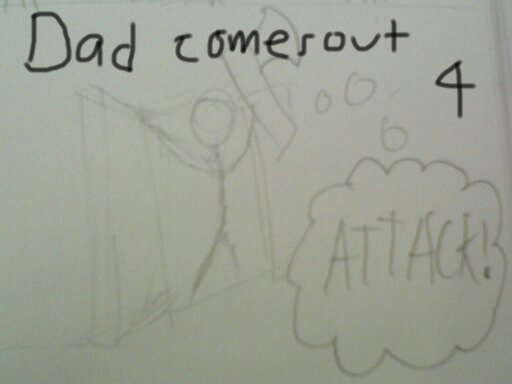 Dad comes out
4
ATTACK!